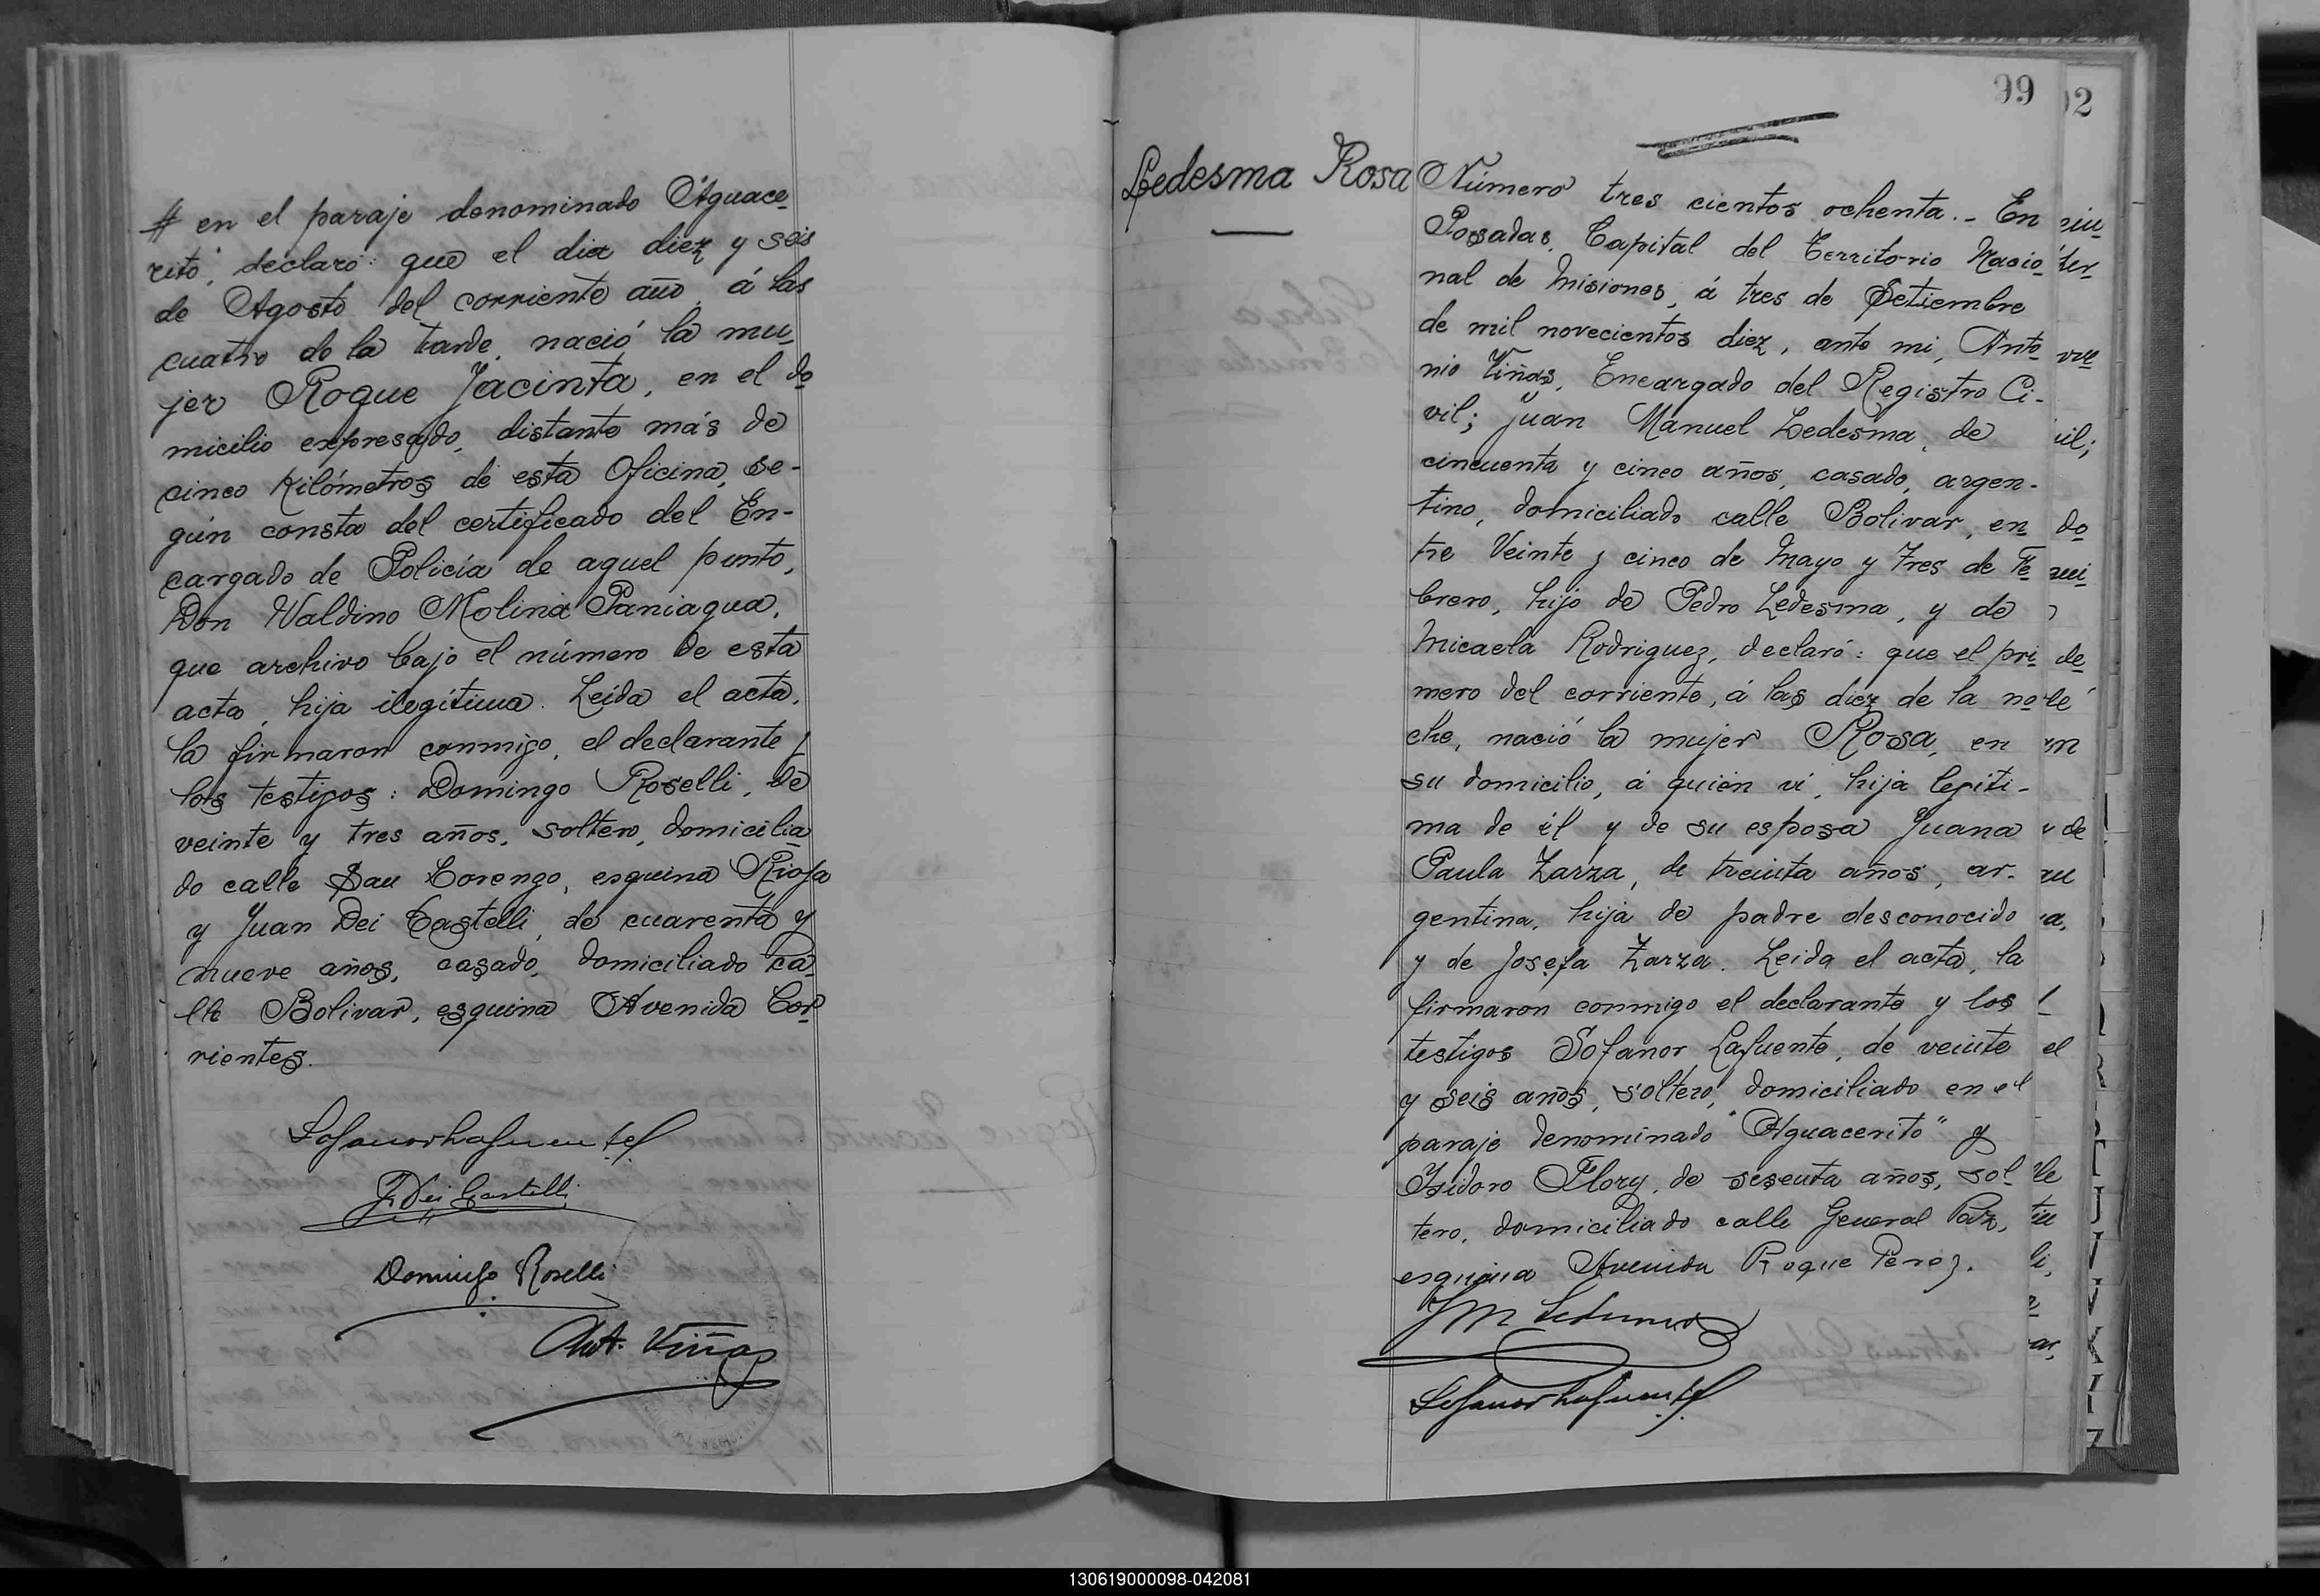 # en el paraje denominado "Aguace-
rito", declaró: que el dia diez y seis
de Agosto del corriente año, á las
cuatro de la tarde, nació la mu-
jer Roque Jacinta, en el do-
micilio expresado, distante más de
cinco Kilómetros de esta Oficina, se-
gún consta del certificado del En-
cargado de Policía de aquel punto,
Don Waldino Molina Paniagua,
que archivo bajo el número de esta
acta, hija ilegítima. Leida el acta,
la firmaron conmigo, el declarante y
los testigos: Domingo Roselli, de
veinte y tres años, soltero, domicilia-
do calle San Lorenzo, esquina Rioja
y Juan Dei Castelli, de cuarenta y
nueve años, casado, domiciliado ca-
lle Bolivar, esquina Avenida Cor-
rientes.
Sofanor Lafuente
J. Dei Castelli
Domingo Roselli
Ant. Viñas
99
02
Ledesma Rosa
Número tres cientos ochenta.- En
Posadas, Capital del Territorio Nacio-
nal de Misiones, á tres de Setiembre
de mil novecientos diez, ante mi, Anto-
nio Viñas, Encargado del Registro Ci-
vil; Juan Manuel Ledesma, de
cincuenta y cinco años, casado, argen-
tino, domiciliado calle Bolivar, en-
tre Veinte y cinco de Mayo y Tres de Fe-
brero, hijo de Pedro Ledesma, y de
Micaela Rodriguez, declaró: que el pri-
mero del corriente, á las diez de la no-
che, nació la mujer Rosa, en
su domicilio, á quien vi, hija legíti-
ma de él y de su esposa Juana
Paula Zarza, de treinta años, ar-
gentina, hija de padre desconocido
y de Josefa Zarza. Leida el acta, la
firmaron conmigo el declarante y los
testigos Sofanor Lafuente, de veinte
y seis años, soltero, domiciliado en el
paraje denominado "Aguacerito" y
Isidoro Flory, de sesenta años, sol-
tero, domiciliado calle General Paz,
esquina Avenida Roque Perez.
J M Ledesma
Sofanor Lafuente
130619000098-042081